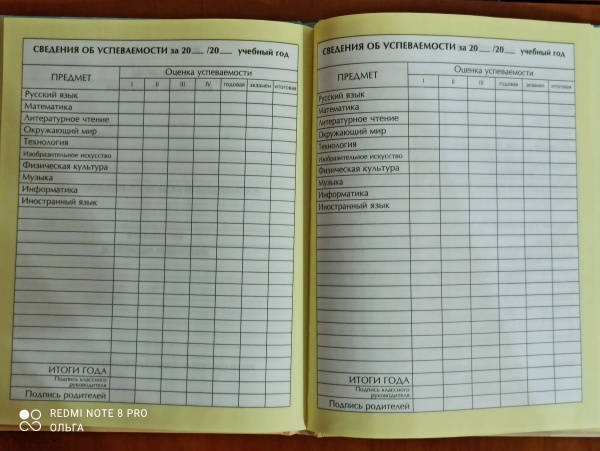 СВЕДЕНИЯ ОБ УСПЕВАЕМОСТИ за 20___ /20___ учебный год
ПРЕДМЕТ
Оценка успеваемости
I II III IV годовая экзамен итоговая
Русский язык
Математика
Литературное чтение
Окружающий мир
Технология
Изобразительное искусство
Физическая культура
Музыка
Информатика
Иностранный язык
ИТОГИ ГОДА
Подпись классного
руководителя
Подпись родителей
СВЕДЕНИЯ ОБ УСПЕВАЕМОСТИ за 20___ /20___ учебный год
ПРЕДМЕТ
Оценка успеваемости
I II III IV годовая экзамен итоговая
Русский язык
Математика
Литературное чтение
Окружающий мир
Технология
Изобразительное искусство
Физическая культура
Музыка
Информатика
Иностранный язык
ИТОГИ ГОДА
Подпись классного
руководителя
Подпись родителей
REDMI NOTE 8 PRO
ОЛЬГА